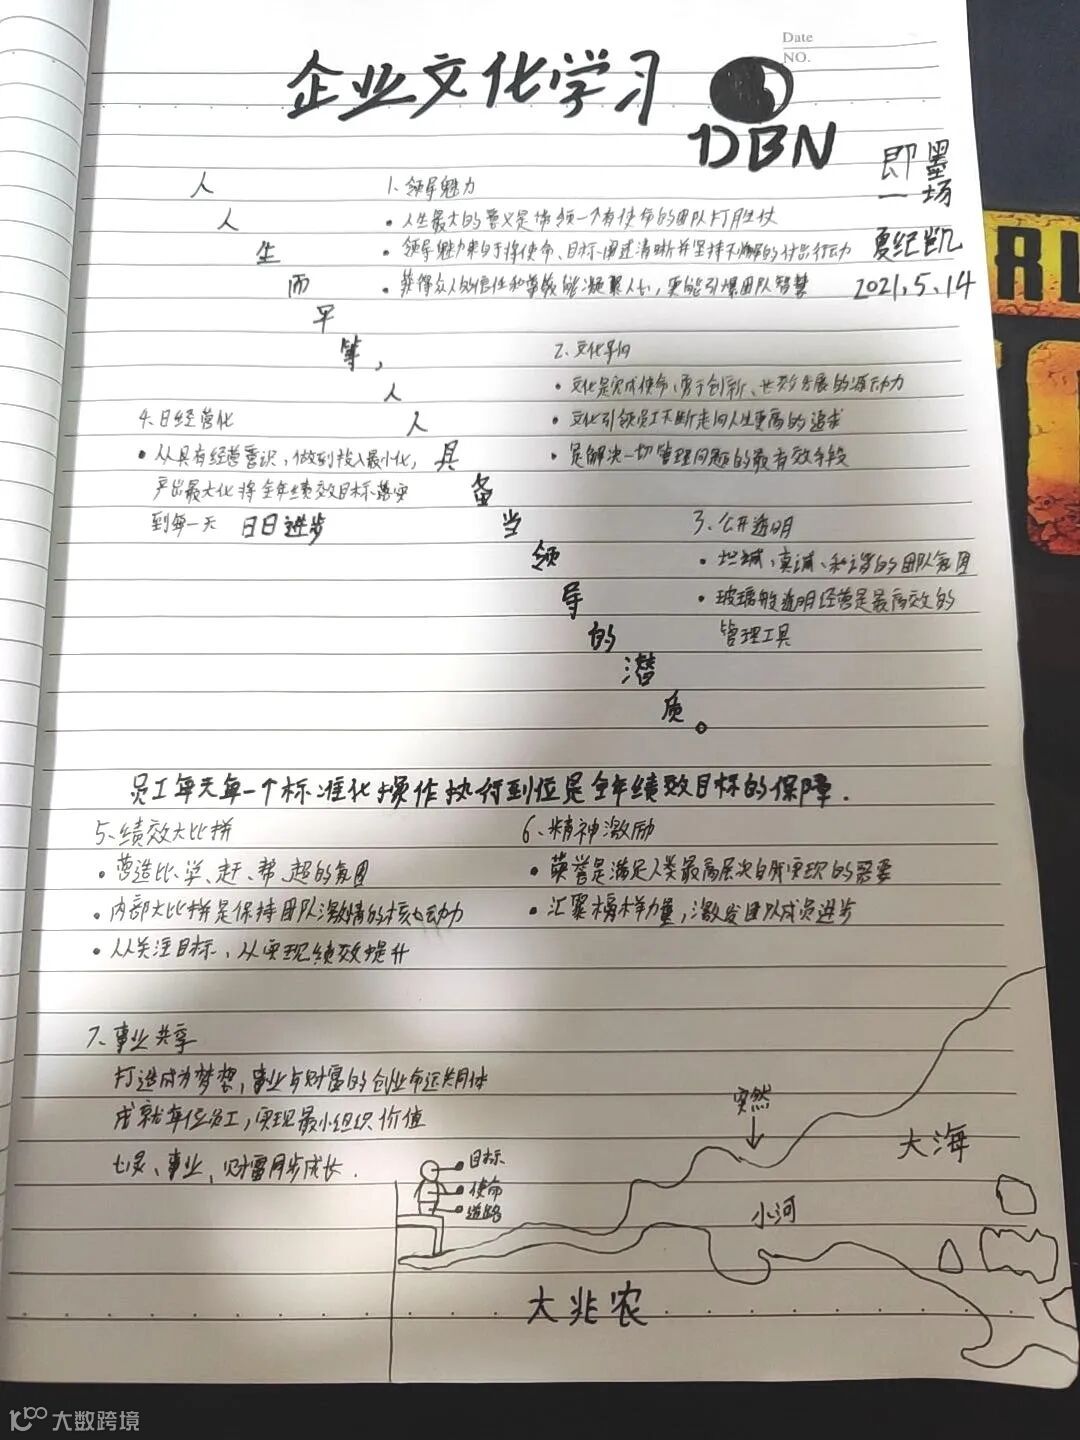 Date
NO.
企业文化学习
DBN
即墨
一场
夏纪凯
2021.5.14
人人生而平等,人人具备当领导的潜质。
1、领导魅力
• 人生最大的意义是带领一个有使命的团队打胜仗
• 领导魅力来自于将使命、目标阐述清晰并坚持不懈的付出行动
• 获得众人的信任和尊敬能凝聚人心,更能引爆团队智慧
2、文化导向
• 文化是完成使命、勇于创新、长效发展的源动力
• 文化引领员工不断走向人生更高的追求
• 是解决一切管理问题的最有效手段
3、公开透明
• 坦诚、真诚、和谐的团队氛围
• 玻璃般透明经营是最高效的
管理工具
4、日经营化
• 人人具有经营意识,做到投入最小化,
产出最大化将全年绩效目标落实
到每一天 日日进步
员工每天每一个标准化操作执行到位是全年绩效目标的保障.
5、绩效大比拼
• 营造比、学、赶、帮、超的氛围
• 内部大比拼是保持团队激情的核心动力
• 人人关注目标、人人实现绩效提升
6、精神激励
• 荣誉是满足人类最高层次自我实现的需要
• 汇聚榜样力量,激发团队成员进步
7、事业共享
打造成为梦想,事业与财富的创业命运共同体
成就每位员工,实现最小组织价值
心灵、事业、财富同步成长.
目标
使命
道路
突然
大海
小河
大北农
大数跨境